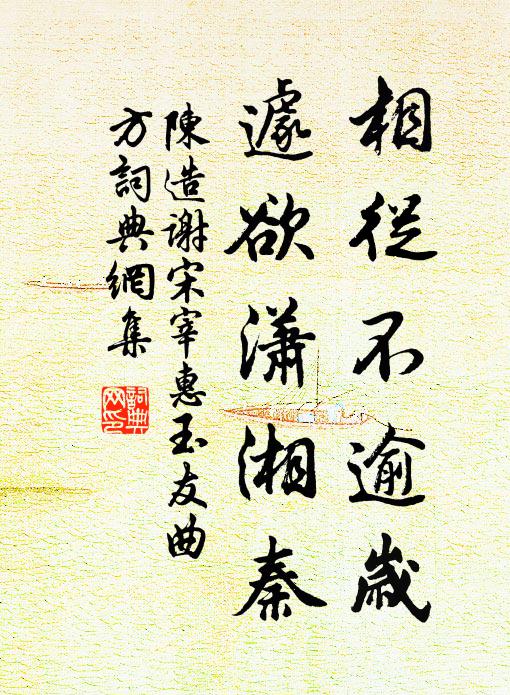 相從不逾歲
遽欲瀟湘秦
陳造謝宋宰惠玉友曲
方詞典網集
詞典
网印